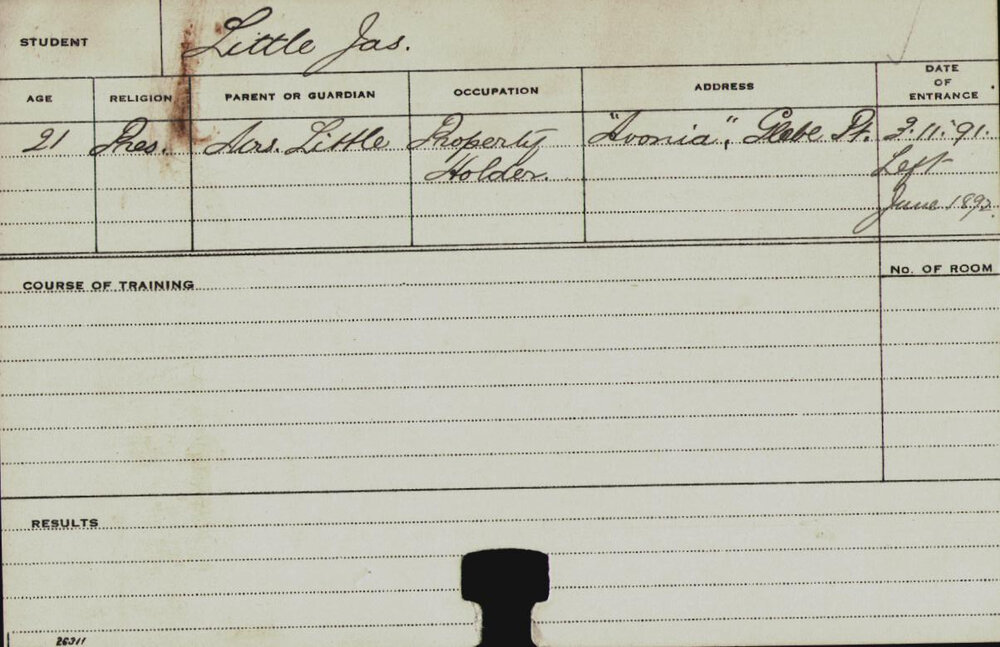 STUDENT Little Jas.
AGE RELIGION PARENT OR GUARDIAN OCCUPATION ADDRESS DATE OF ENTRANCE
21 Pres. Mrs. Little Property Holder. "Avonia", Glebe Pt. 3.11.'91.
Left
June 1892.
COURSE OF TRAINING
No. OF ROOM
RESULTS
26311